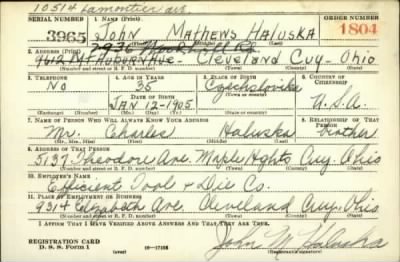 10514 Lamontier ave.
SERIAL NUMBER 1. NAME (Print) ORDER NUMBER
3965 JOHN MATHENS HALUSKA 1804
(First) (Middle) (Last)
2. ADDRESS (Print)
9612 MT AUBURN AVE - Cleveland Cuy - Ohio
(Number and street or R. F. D. number) (Town) (County) (State)
3. TELEPHONE 4. AGE IN YEARS 5. PLACE OF BIRTH 6. COUNTRY OF CITIZENSHIP
No 35 Czechslovikia
DATE OF BIRTH (Town or county)
JAN 12-1905 U.S.A.
(Exchange) (No.) (Mo.) (Day) (Yr.) (State or country)
7. NAME OF PERSON WHO WILL ALWAYS KNOW YOUR ADDRESS 8. RELATIONSHIP OF THAT PERSON
Mr. Charles Haluska brother
(Mr., Mrs., Miss) (First) (Middle) (Last)
9. ADDRESS OF THAT PERSON
5137 Theodore Ave. Maple Hghts Cuy. Ohio
(Number and street or R. F. D. number) (Town) (County) (State)
10. EMPLOYER'S NAME
Efficient Tool & Die Co.
11. PLACE OF EMPLOYMENT OR BUSINESS
9314 Elizabeth Ave. Cleveland Cuy. Ohio
(Number and street or R. F. D. number) (Town) (County) (State)
I AFFIRM THAT I HAVE VERIFIED ABOVE ANSWERS AND THAT THEY ARE TRUE.
REGISTRATION CARD
D. S. S. Form 1 (over) 16-17105
John M Haluska